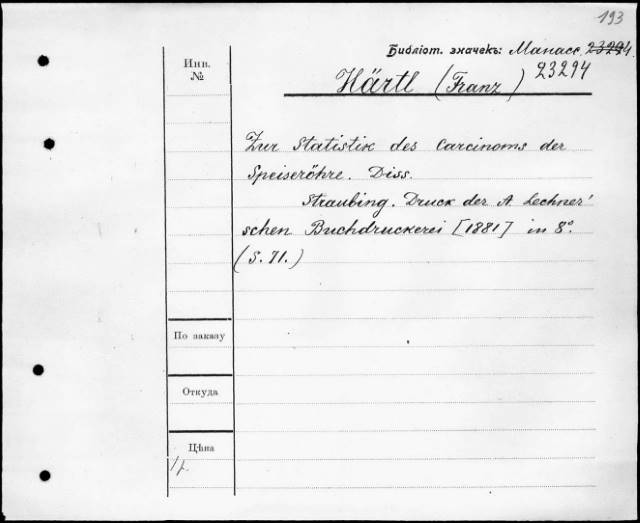 193
Библіот. значекъ: Манасс. 23294.
23294
Härtl (Franz)
Инв.
№
Zur Statistik des Carcinoms der
Speiseröhre. Diss.
Straubing. Druck der A. Lechner'
schen Buchdruckerei [1881] in 8°.
(S. 71.)
По заказу
Откуда
Цѣна